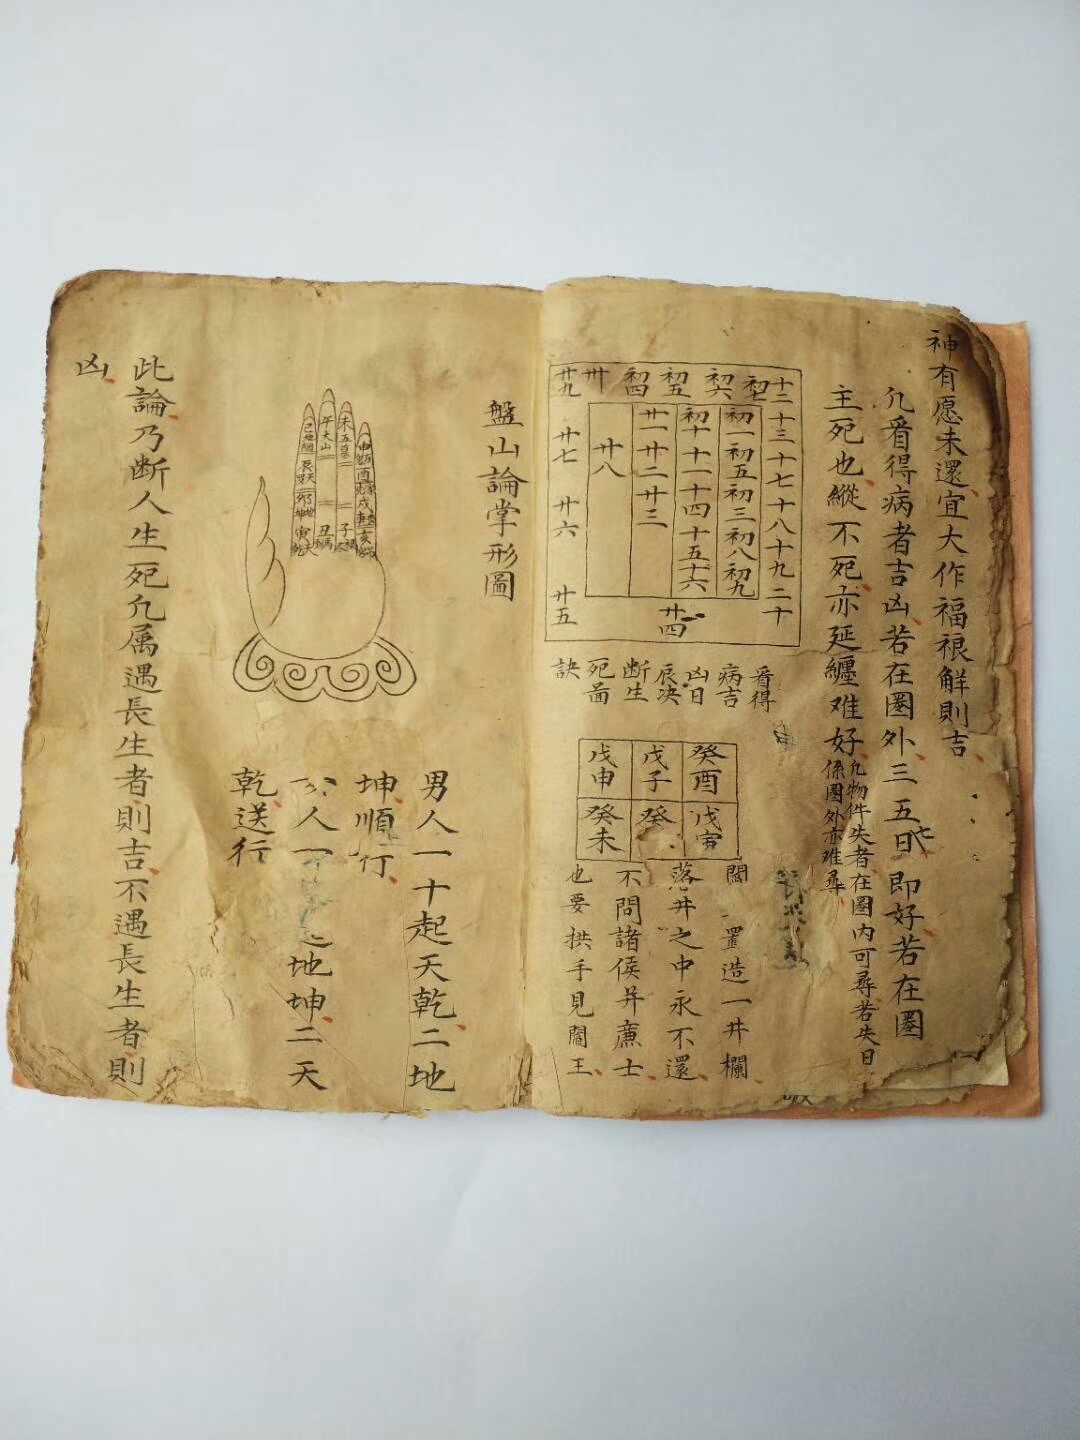 神有愿未還宜大作福禄解則吉
凢看得病者吉凶若在圏外三五七日即好若在圏
主死也縱不死亦延纏难好
凢物件失者在圏内可尋若失日
係圏外亦难尋
十二十三十七十八十九二十
初七
初六
初五
初四
卅
廿九
廿七
廿六
廿五
廿四
初一初五初三初八初九
初十十一十四十五十六
廿一廿二廿三
廿八
看得
病吉
凶日
辰决
断生
死畐
訣
癸酉
戊子
戊申
戊寅
癸
癸未
閻
置造一井欄
落井之中永不還
不問諸侯并廉士
也要拱手見閻王
盤山論掌形圖
未五墓
午大山
子
丑
寅
男人一十起天乾二地
坤順行
人一
地坤二天
乾送行
此論乃断人生死凢属遇長生者則吉不遇長生者則
凶